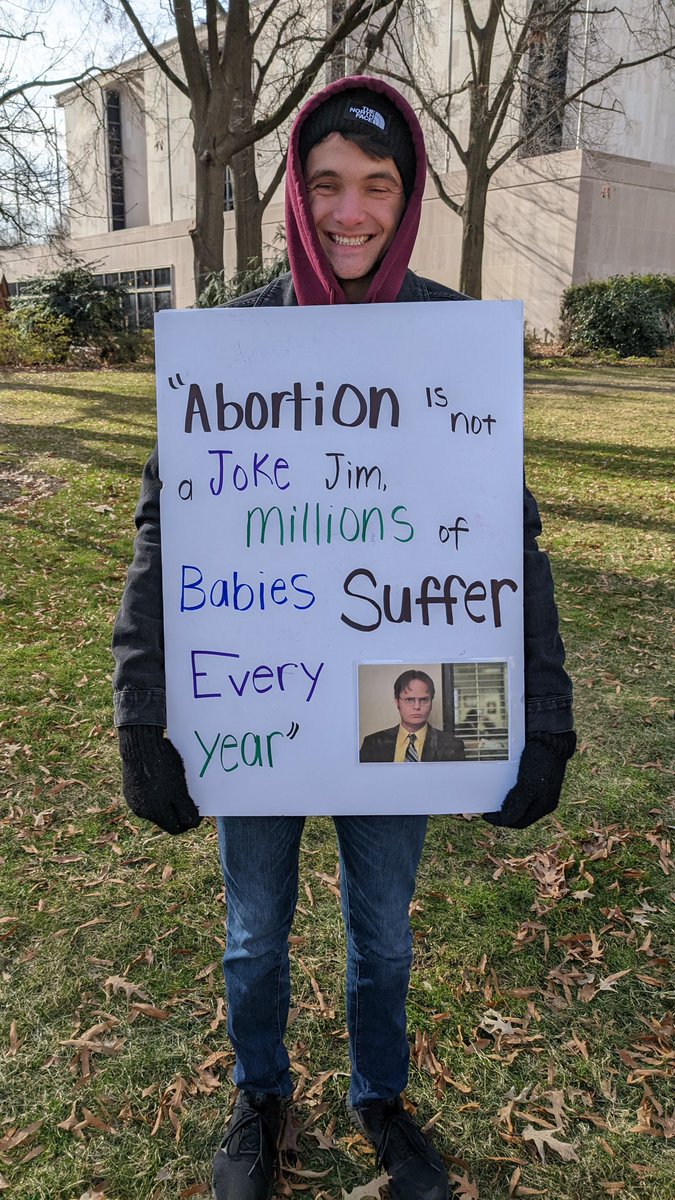 THE
NORTH
FACE
"Abortion Is not
a Joke Jim,
millions of
Babies Suffer
Every
year"